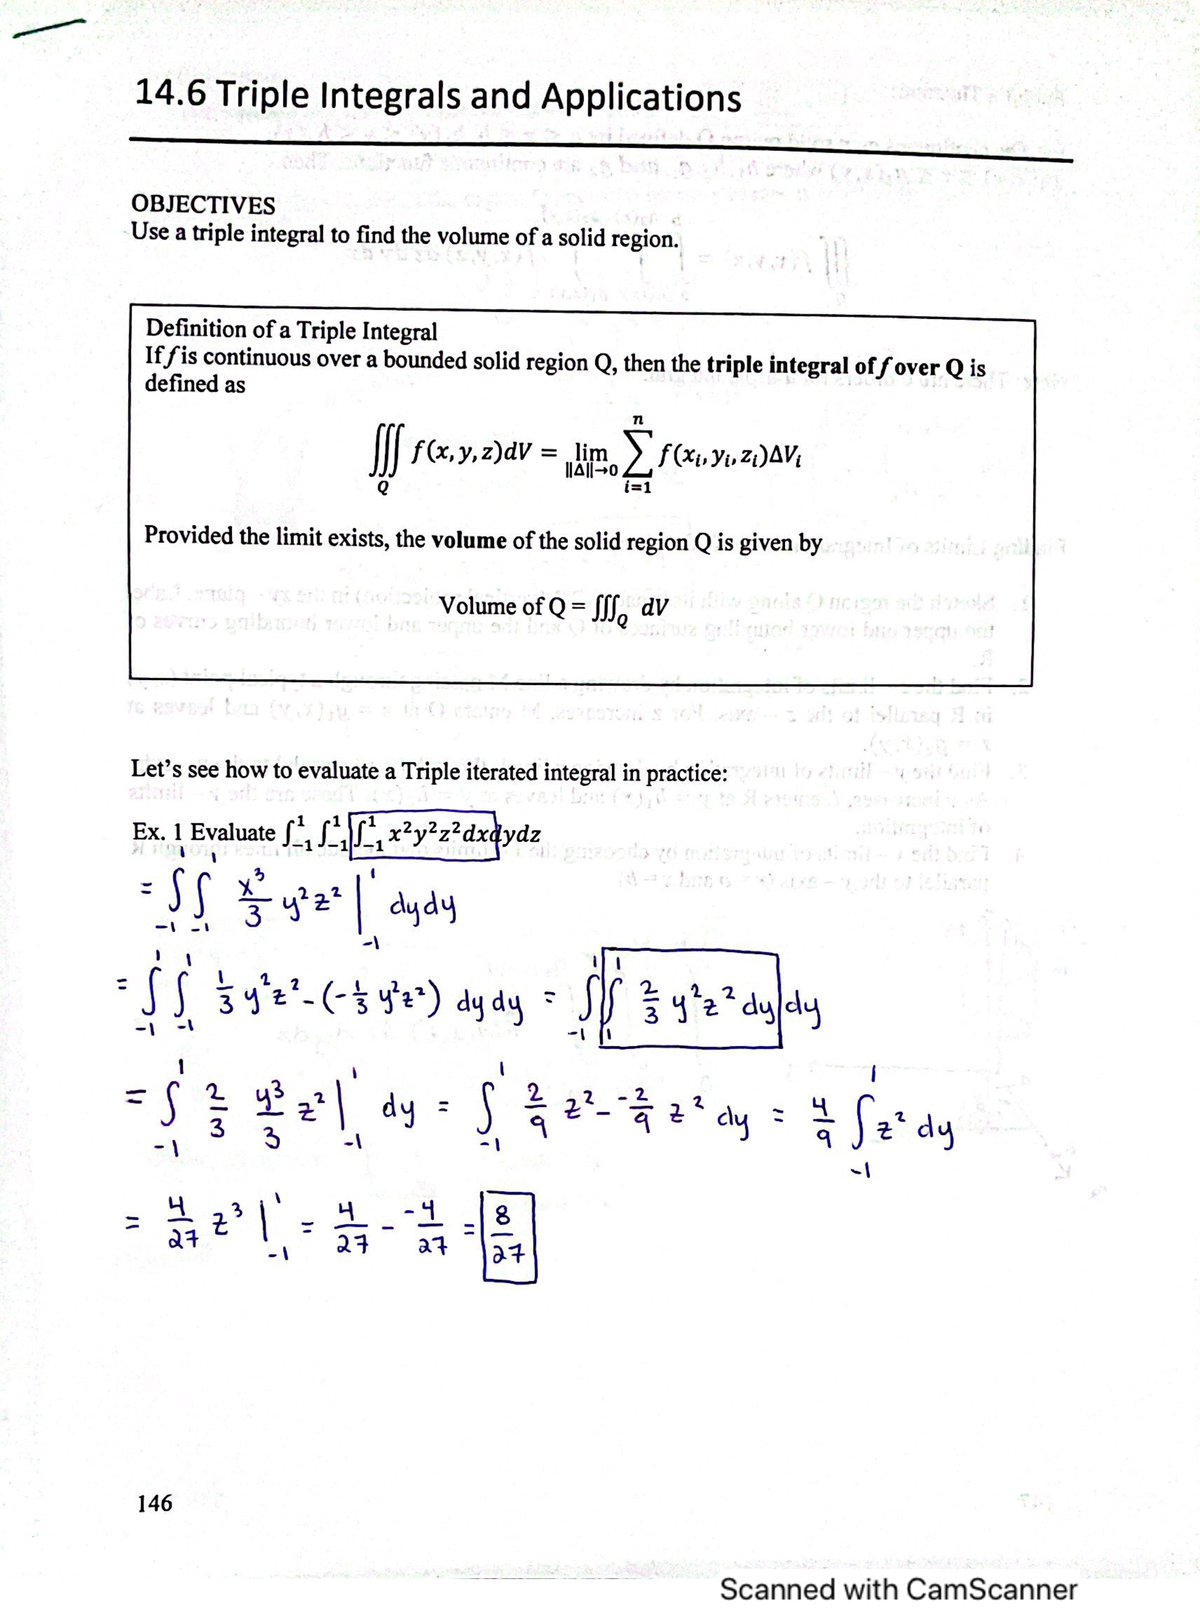 14.6 Triple Integrals and Applications
OBJECTIVES
Use a triple integral to find the volume of a solid region.
Definition of a Triple Integral
If f is continuous over a bounded solid region Q, then the triple integral of f over Q is
defined as
∭_Q f(x, y, z)dV = lim_{||Δ||→0} ∑_{i=1}^{n} f(x_i, y_i, z_i)ΔV_i
Provided the limit exists, the volume of the solid region Q is given by
Volume of Q = ∭_Q dV
Let's see how to evaluate a Triple iterated integral in practice:
Ex. 1 Evaluate ∫_{-1}^{1} ∫_{-1}^{1} ∫_{-1}^{1} x²y²z²dxdydz
= ∫_{-1}^{1} ∫_{-1}^{1} x³/3 y²z² |_{-1}^{1} dydy
= ∫_{-1}^{1} ∫_{-1}^{1} 1/3 y²z² - (-1/3 y²z²) dydy = ∫_{-1}^{1} ∫_{1}^{1} 2/3 y²z² dy dy
= ∫_{-1}^{1} 2/3 y³/3 z² |_{-1}^{1} dy = ∫_{-1}^{1} 2/9 z² - -2/9 z² dy = 4/9 ∫_{-1}^{1} z² dy
= 4/27 z³ |_{-1}^{1} = 4/27 - -4/27 = 8/27
146
Scanned with CamScanner